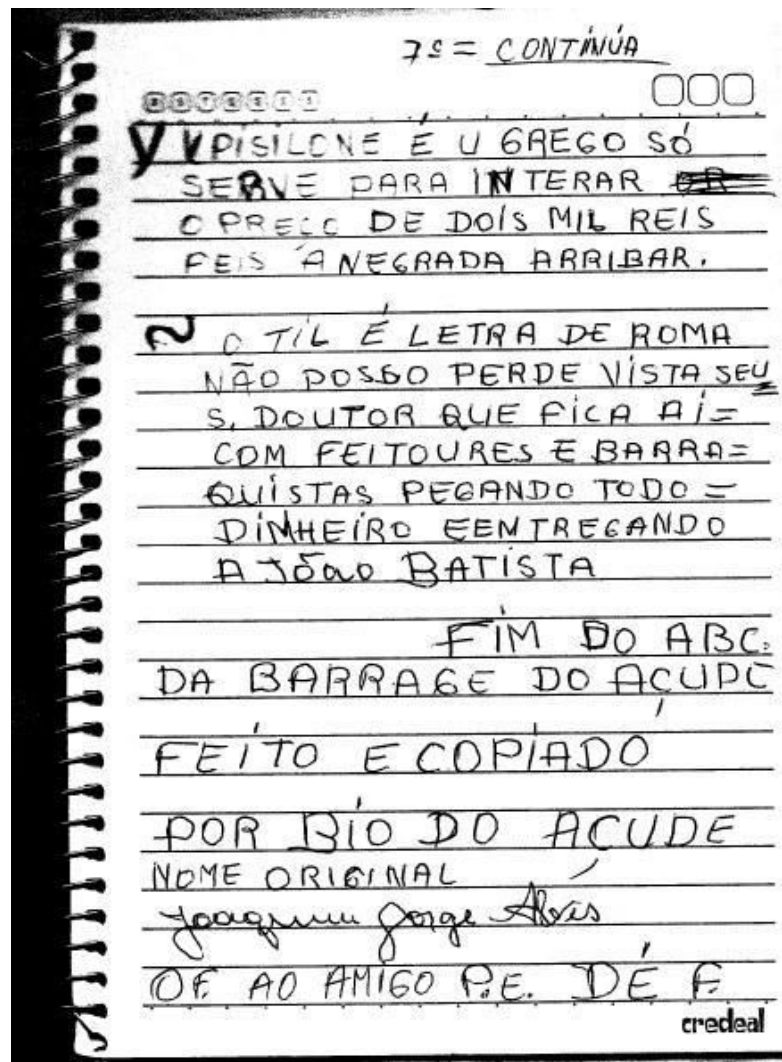 7º = CONTÍNÚA
D S T Q Q S S
Y YPISILONE É U GREGO SÓ
SERVE PARA INTERAR
O PREÇO DE DOIS MIL REIS
FEIS A NEGRADA ARRIBAR.
~ O TIL É LETRA DE ROMA
NÃO POSSO PERDE VISTA SEU
S. DOUTOR QUE FICA AÍ=
COM FEITOURES E BARRA=
QUISTAS PEGANDO TODO =
DINHEIRO EENTREGANDO
A JÕAO BATISTA
FIM DO ABC.
DA BARRAGE DO AÇUDE
FEITO E COPIADO
POR BIO DO AÇUDE
NOME ORIGINAL
Joaquim Jorge Alves
OF. AO AMIGO P.E. DÉ F.
credeal